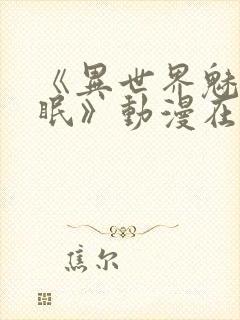 《異世界魅
眠》動漫在
焦尔